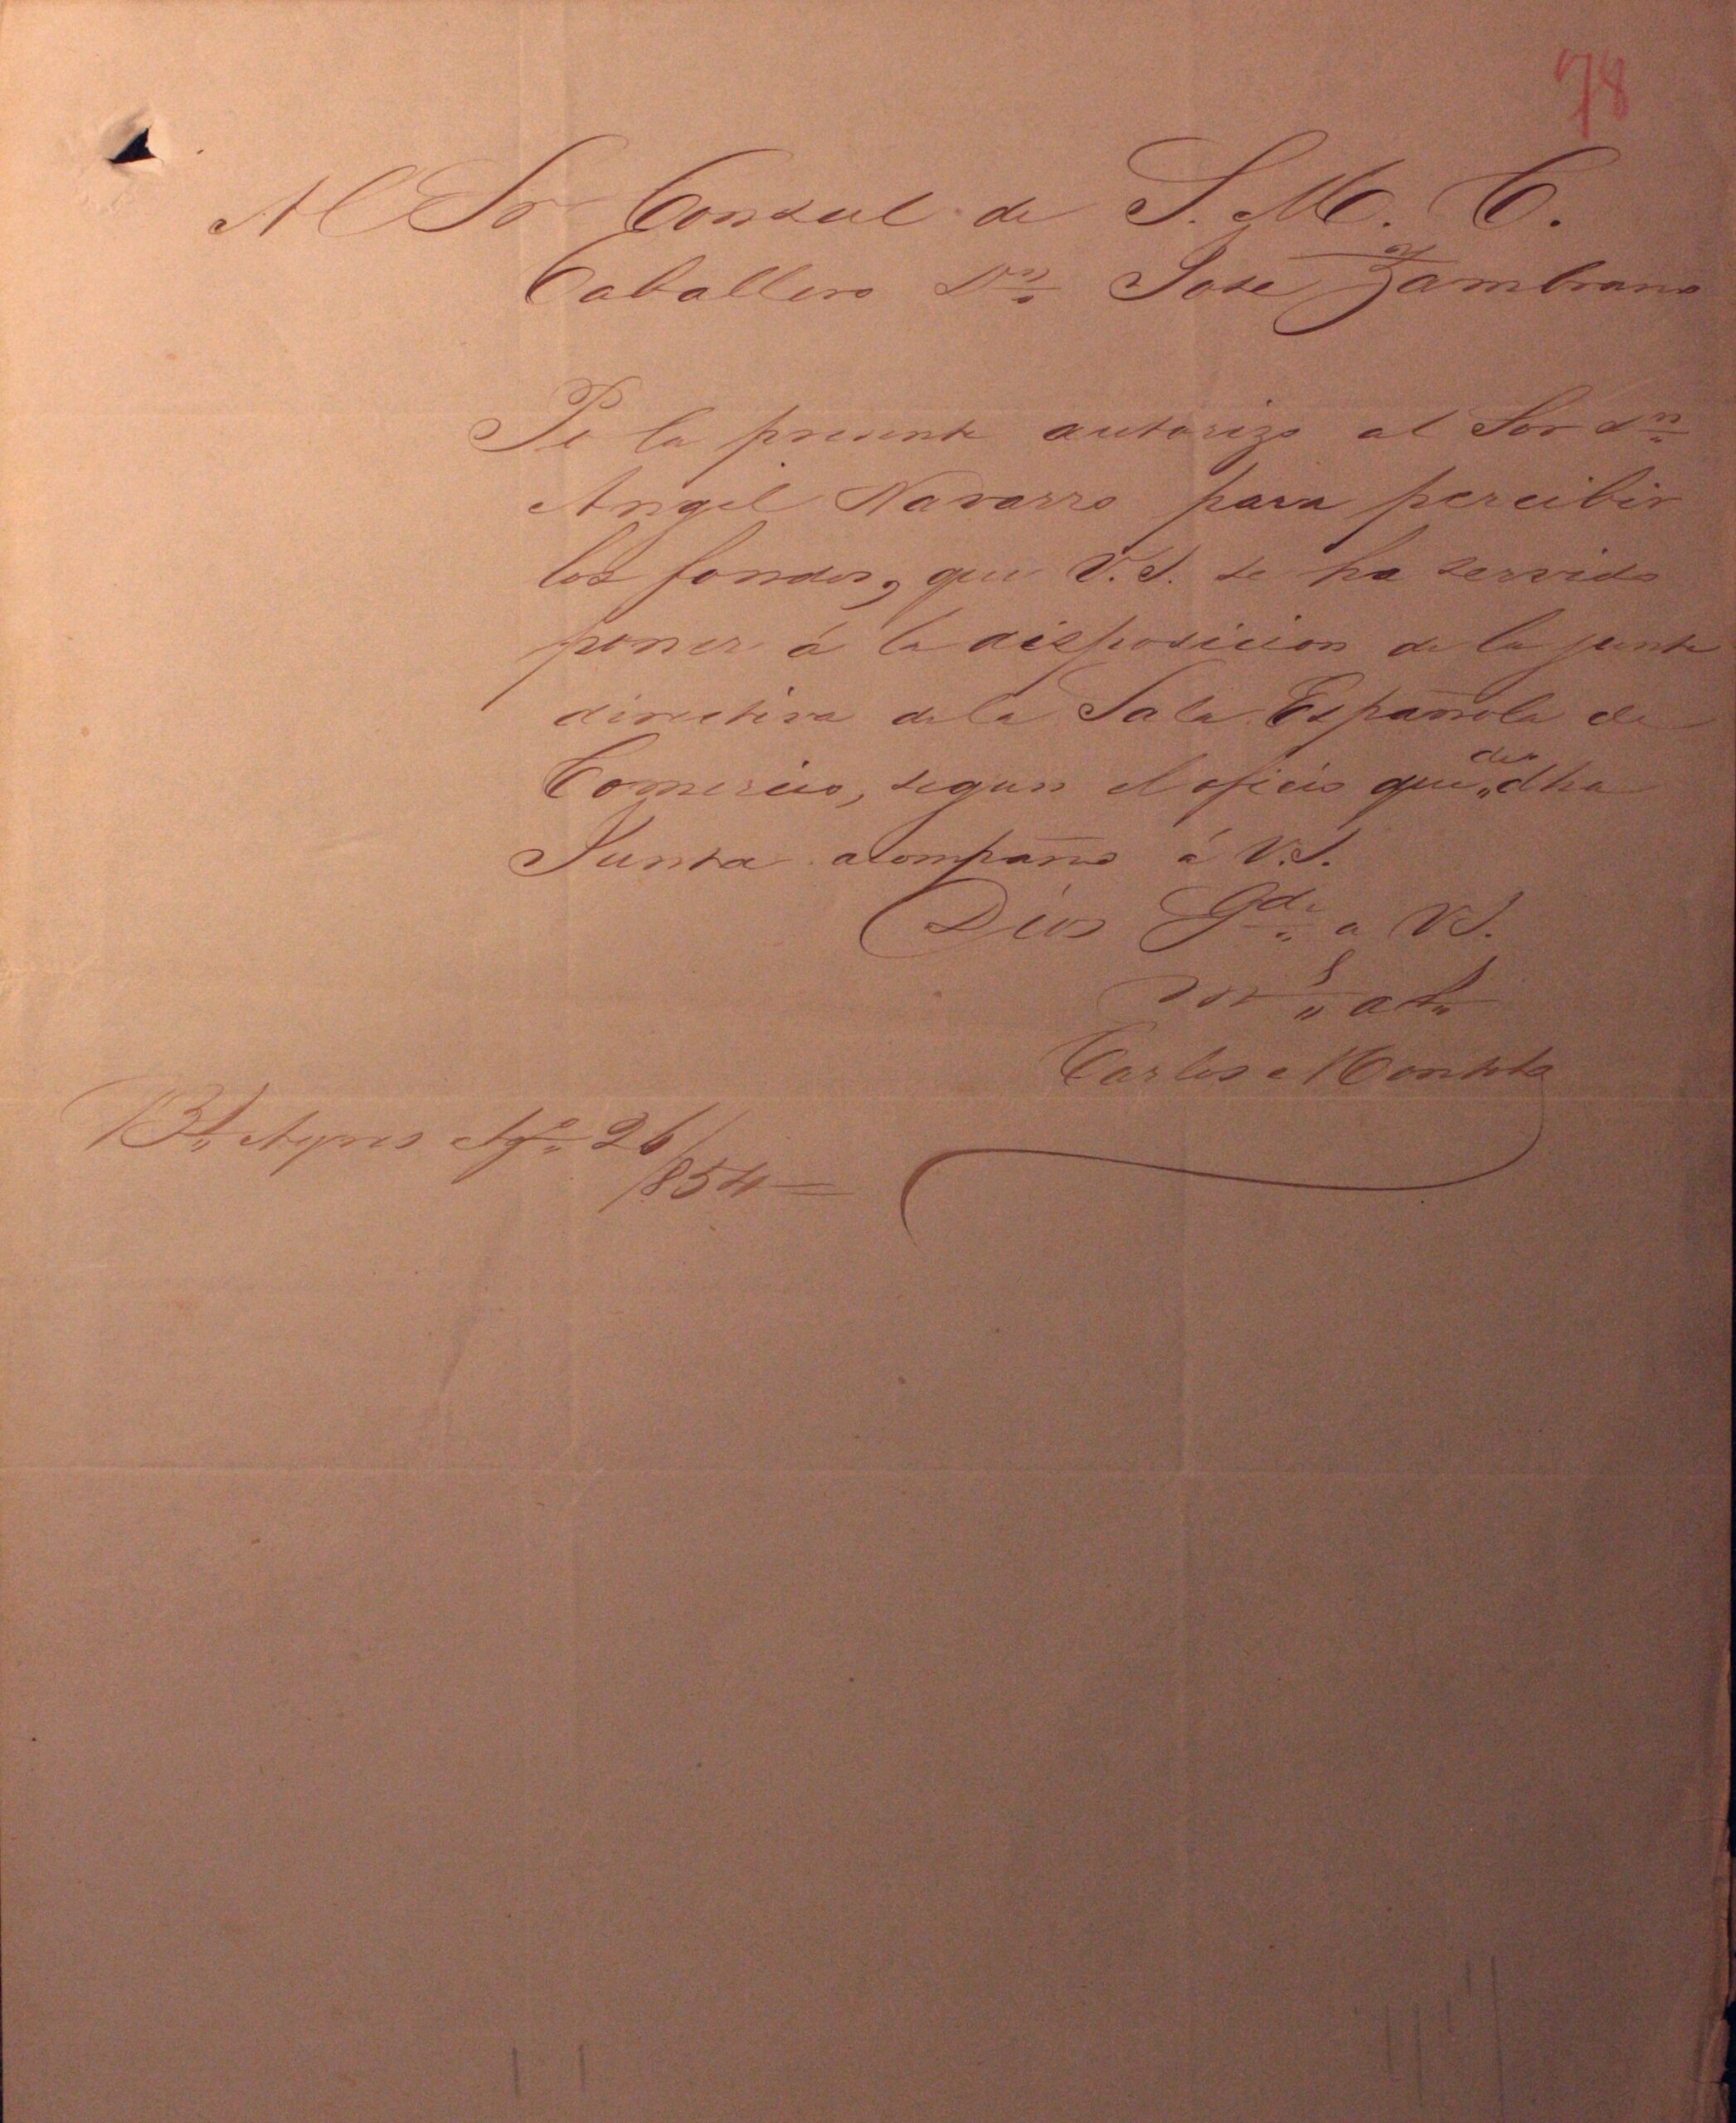 78
Al Sr Consul de S. M. C.
Caballero Dn Jose Zambrano
Po la presente autorizo al Sor Dn
Angel Navarro para percibir
los fondos, que V.S. se ha servido
poner á la disposicion de la junta
directiva dela Sala Española de
Comercio, segun el oficio que de dha
Junta acompaño á V.S.
Dios Gde a VS.
ms as
Carlos
Bs Ayres Ago 26/
1854